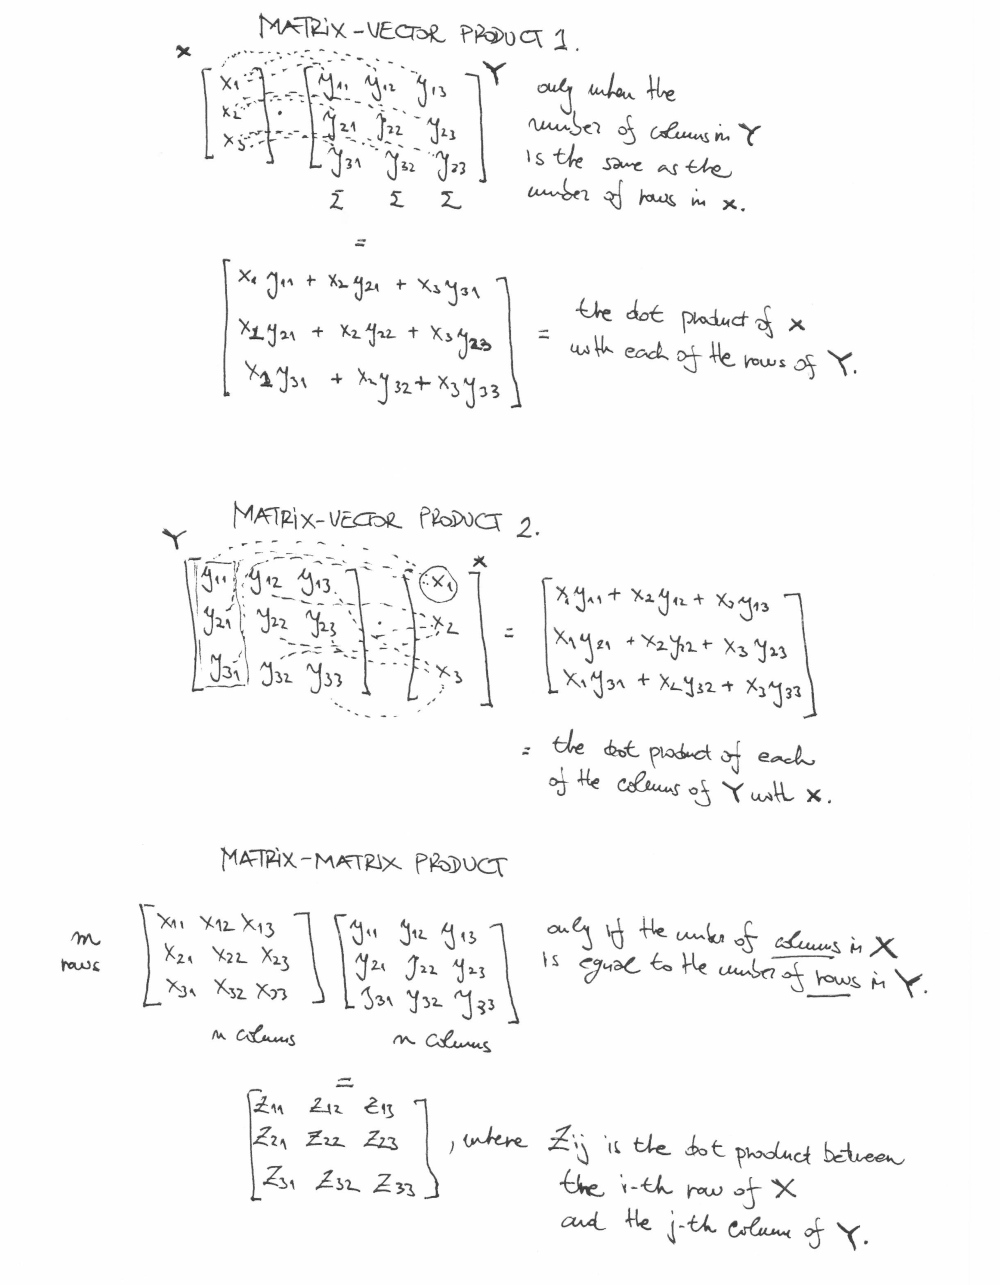 MATRIX-VECTOR PRODUCT 1.
x
[x1 x2 x3] · [y11 y12 y13
y21 y22 y23
y31 y32 y33] Y
Σ Σ Σ
only when the
number of colums in Y
is the same as the
number of rows in x.
=
x1 y11 + x2 y21 + x3 y31
x1 y21 + x2 y22 + x3 y23
x1 y31 + x2 y32 + x3 y33
= the dot product of x
with each of the rows of Y.
MATRIX-VECTOR PRODUCT 2.
Y x
y11 y12 y13 · x1
y21 y22 y23 x2
y31 y32 y33 x3
=
x1 y11 + x2 y12 + x3 y13
x1 y21 + x2 y22 + x3 y23
x1 y31 + x2 y32 + x3 y33
= the dot product of each
of the colums of Y with x.
MATRIX-MATRIX PRODUCT
m
rows
x11 x12 x13
x21 x22 x23
x31 x32 x33
n colums
y11 y12 y13
y21 y22 y23
y31 y32 y33
n colums
only if the number of colums in X
is equal to the number of rows in Y.
=
z11 z12 z13
z21 z22 z23
z31 z32 z33
, where Zij is the dot product between
the i-th row of X
and the j-th column of Y.